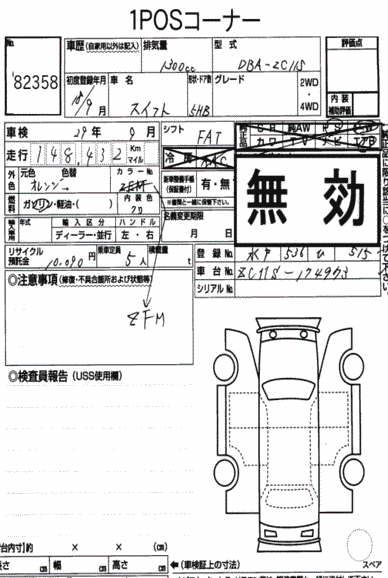 1POSコーナー
No. 82358
車歴 (自家用以外は記入) 排気量 1300cc 型式 DBA-ZC11S 評価点
初度登録年月 18/9月 車名 スイフト 形状・ドア数 5HB グレード 2WD・4WD
内装補助評価
車検 29年9月 シフト FAT
走行 148,432 Km マイル
外色 元色 オレンジ→ 色替 カラーNo. ZFM
燃料 ガソリン・軽油・( ) 内装色
新車整備手帳(保証書付) 有・無
無効
名義変更期限 月 日
輸入車 年式 輸入区分 ディーラー・並行 ハンドル 左・右
リサイクル預託金 10,090円 乗車定員 5人 積載量 t
登録No. 水戸 536 ひ 515
車台No. ZC11S-174953
シリアルNo.
◎注意事項(修復・不具合箇所および状態等)
ZFM
◎検査員報告(USS使用欄)
台内寸)約 × × (cm)
長さ cm 幅 cm 高さ cm ←(車検証上の寸法)
スペア